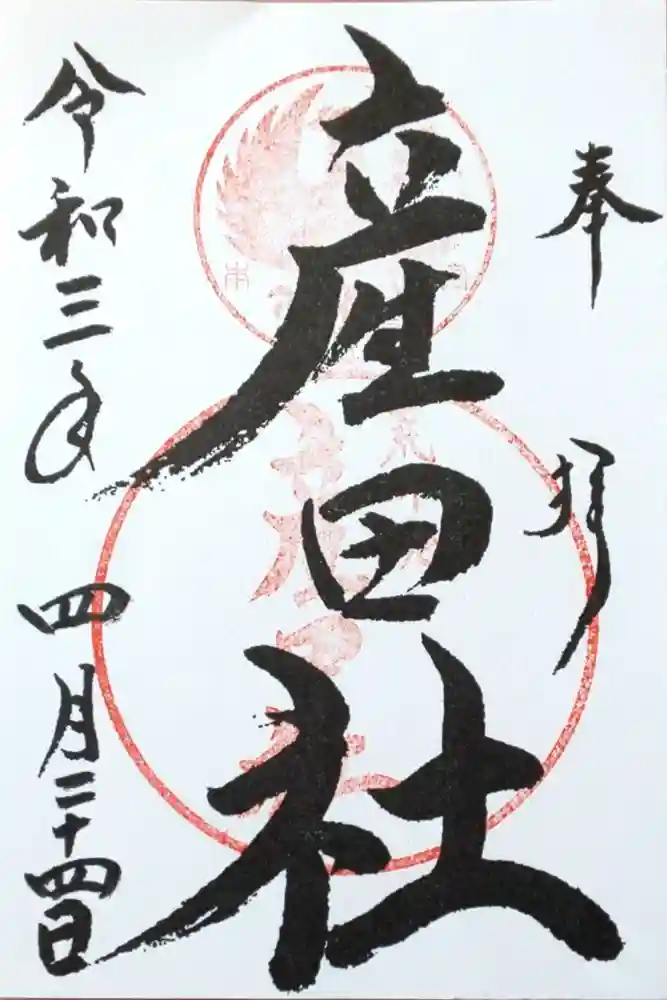 奉拝
産田社
令和三年四月二十四日